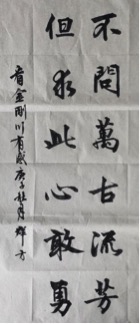 不問萬古流芳
但求此心敢勇
看金剛川有感庚子杜月輝方